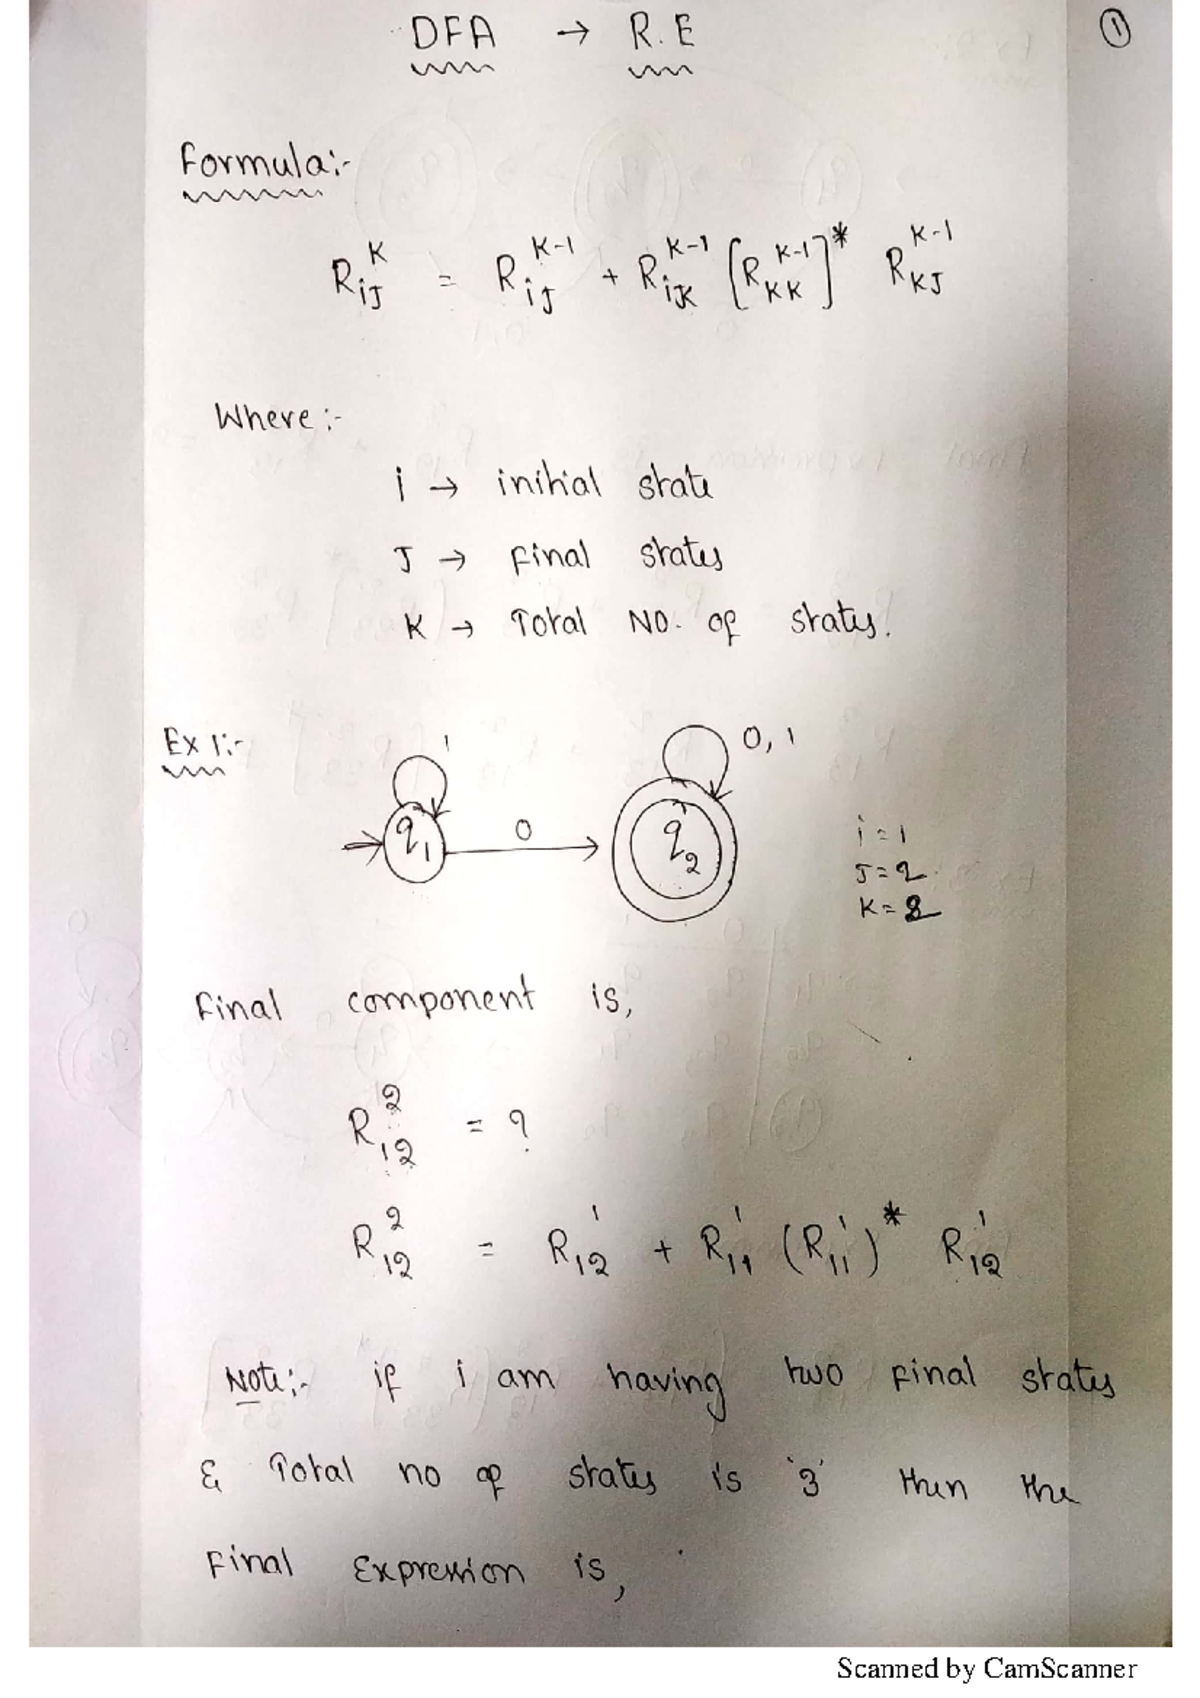 DFA → R.E
1
Formula:-
R_{iJ}^{K} = R_{iJ}^{K-1} + R_{iK}^{K-1} [R_{KK}^{K-1}]* R_{KJ}^{K-1}
Where:-
i → initial state
J → Final states
K → Total NO. of states.
Ex 1:-
1
0, 1
q1
0
q2
i = 1
J = 2
K = 2
Final component is,
R_{12}^{2} = ?
R_{12}^{2} = R_{12}^{1} + R_{11}^{1} (R_{11}^{1})* R_{12}^{1}
Note:- if i am having two final states
& Total no of states is '3' then the
Final Expression is,
Scanned by CamScanner